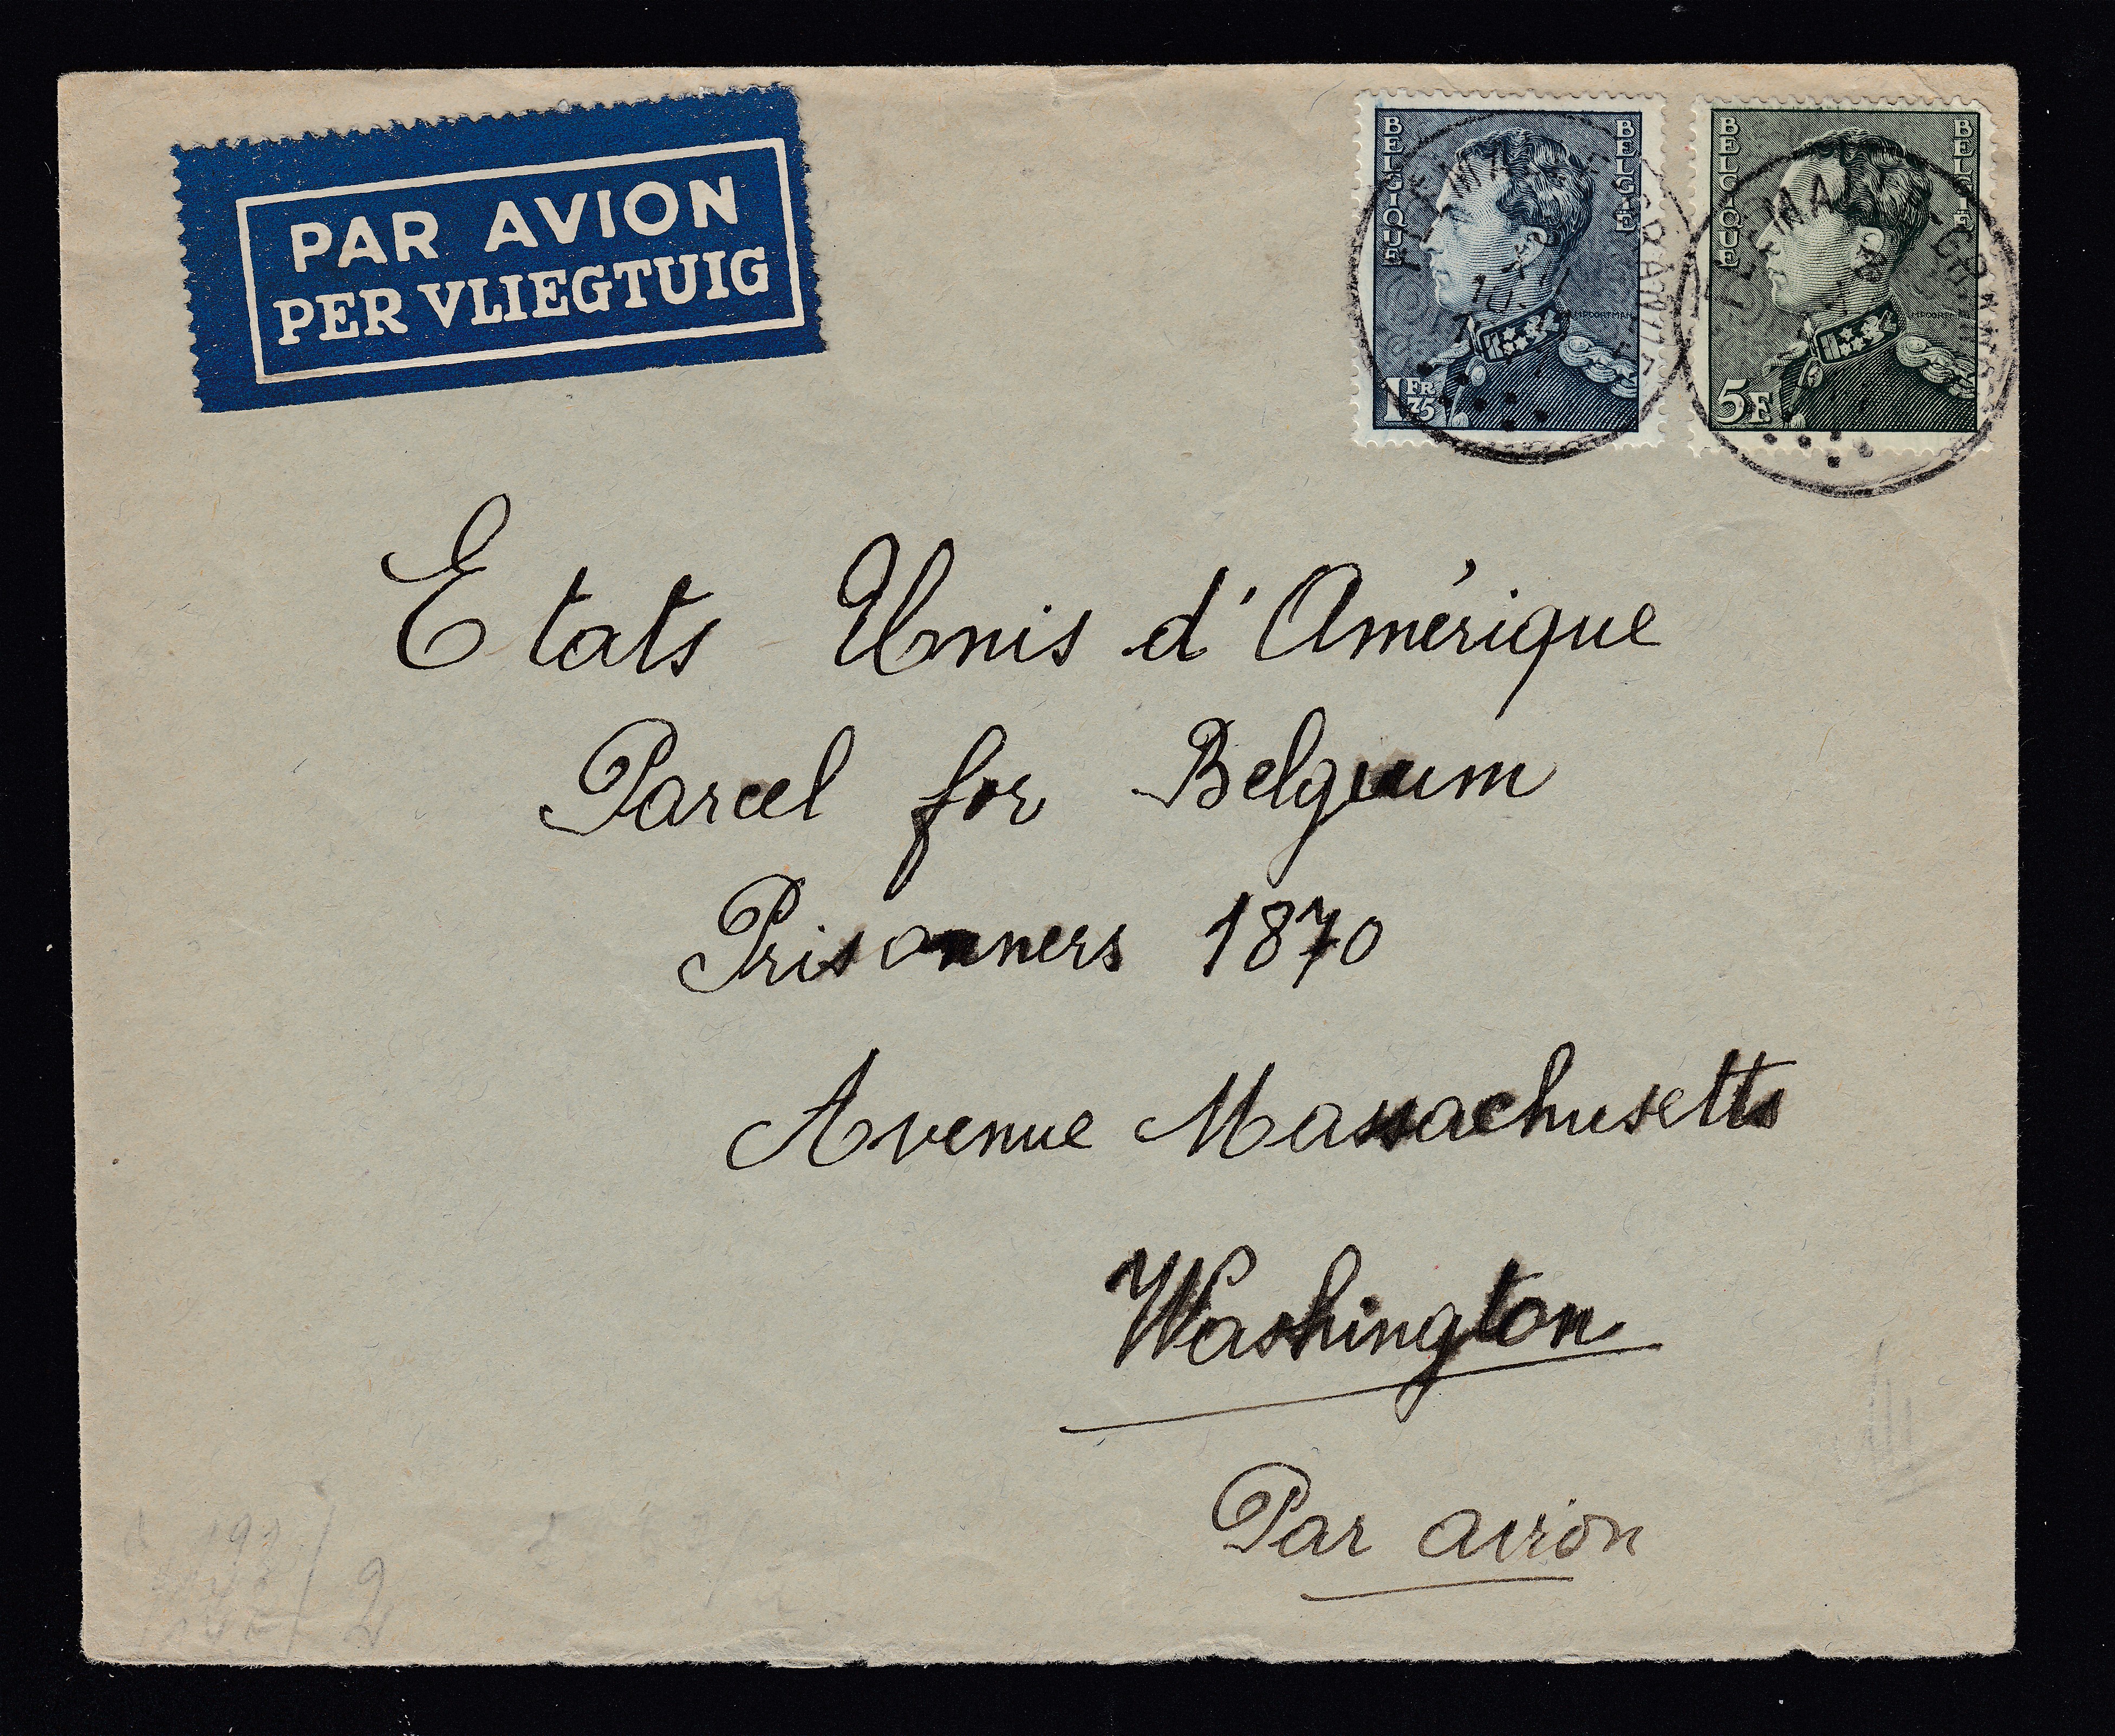 PAR AVION
PER VLIEGTUIG
BELGIQUE
BELGIE
1 FR 75
BELGIQUE
BELGIE
5F
Etats Unis d'Amérique
Parcel for Belgium
Prisonners 1870
Avenue Massachusetts
Washington
Par avion